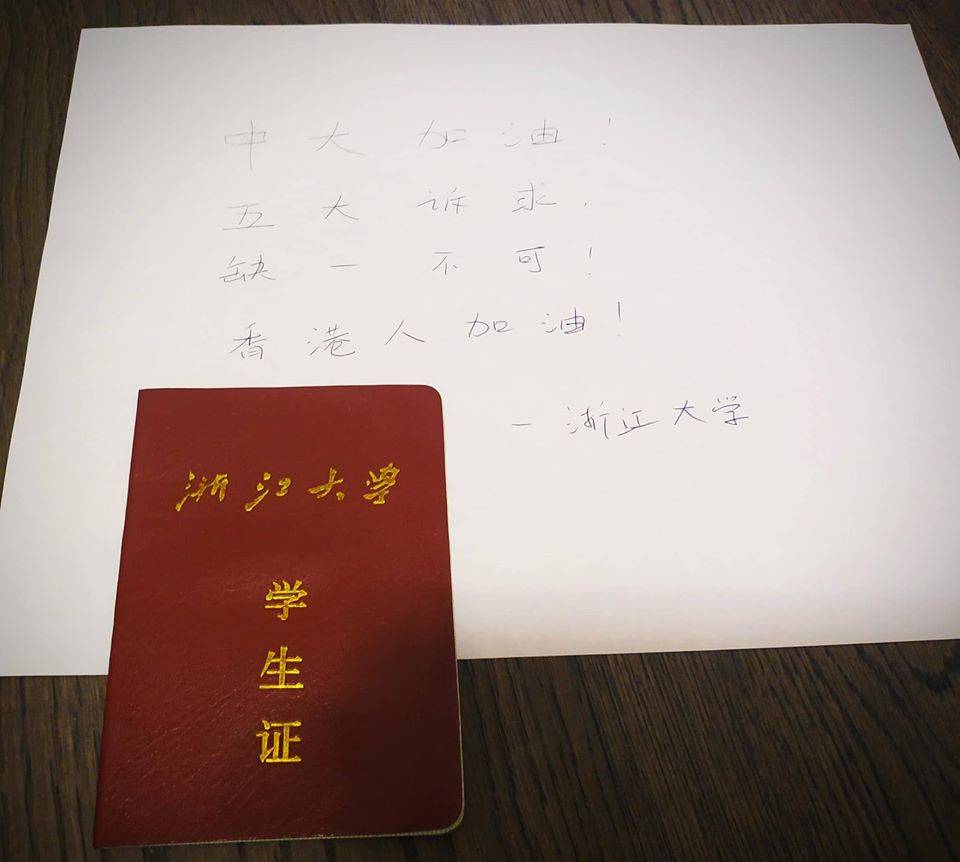 中大加油!
五大诉求.
缺一不可!
香港人加油!
- 浙江大学
浙江大学
学
生
证